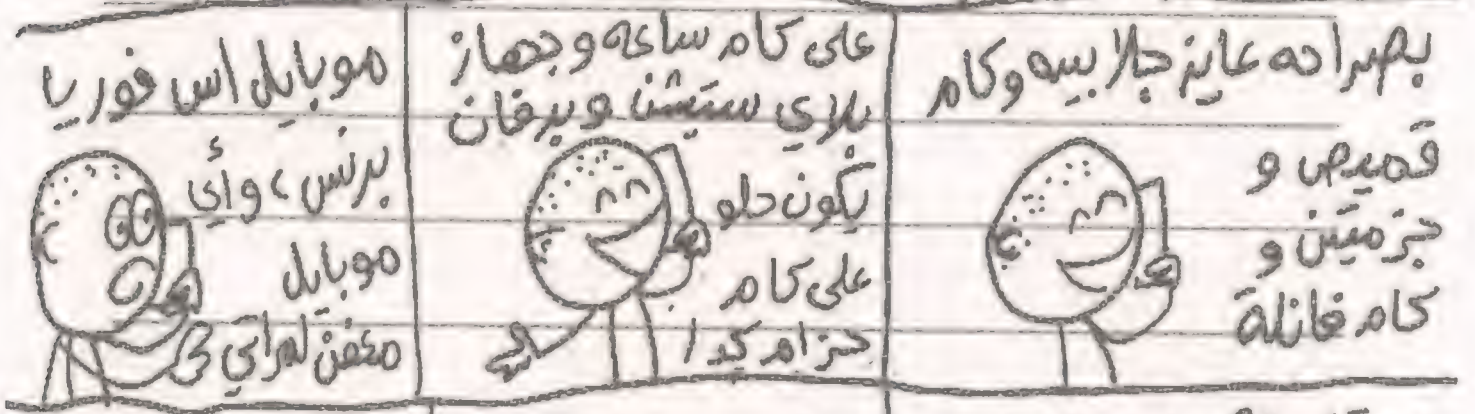 بصراحه عايز جلابيه وكام
قميص و
جزمتين و
كام فانلة
على كام ساعه وجهاز
بلاي ستيشن وبرفان
يكون حلو
على كام
حزام كدا
موبايل اس فور يا
برنس، وأي
موبايل
معفن لمراتي